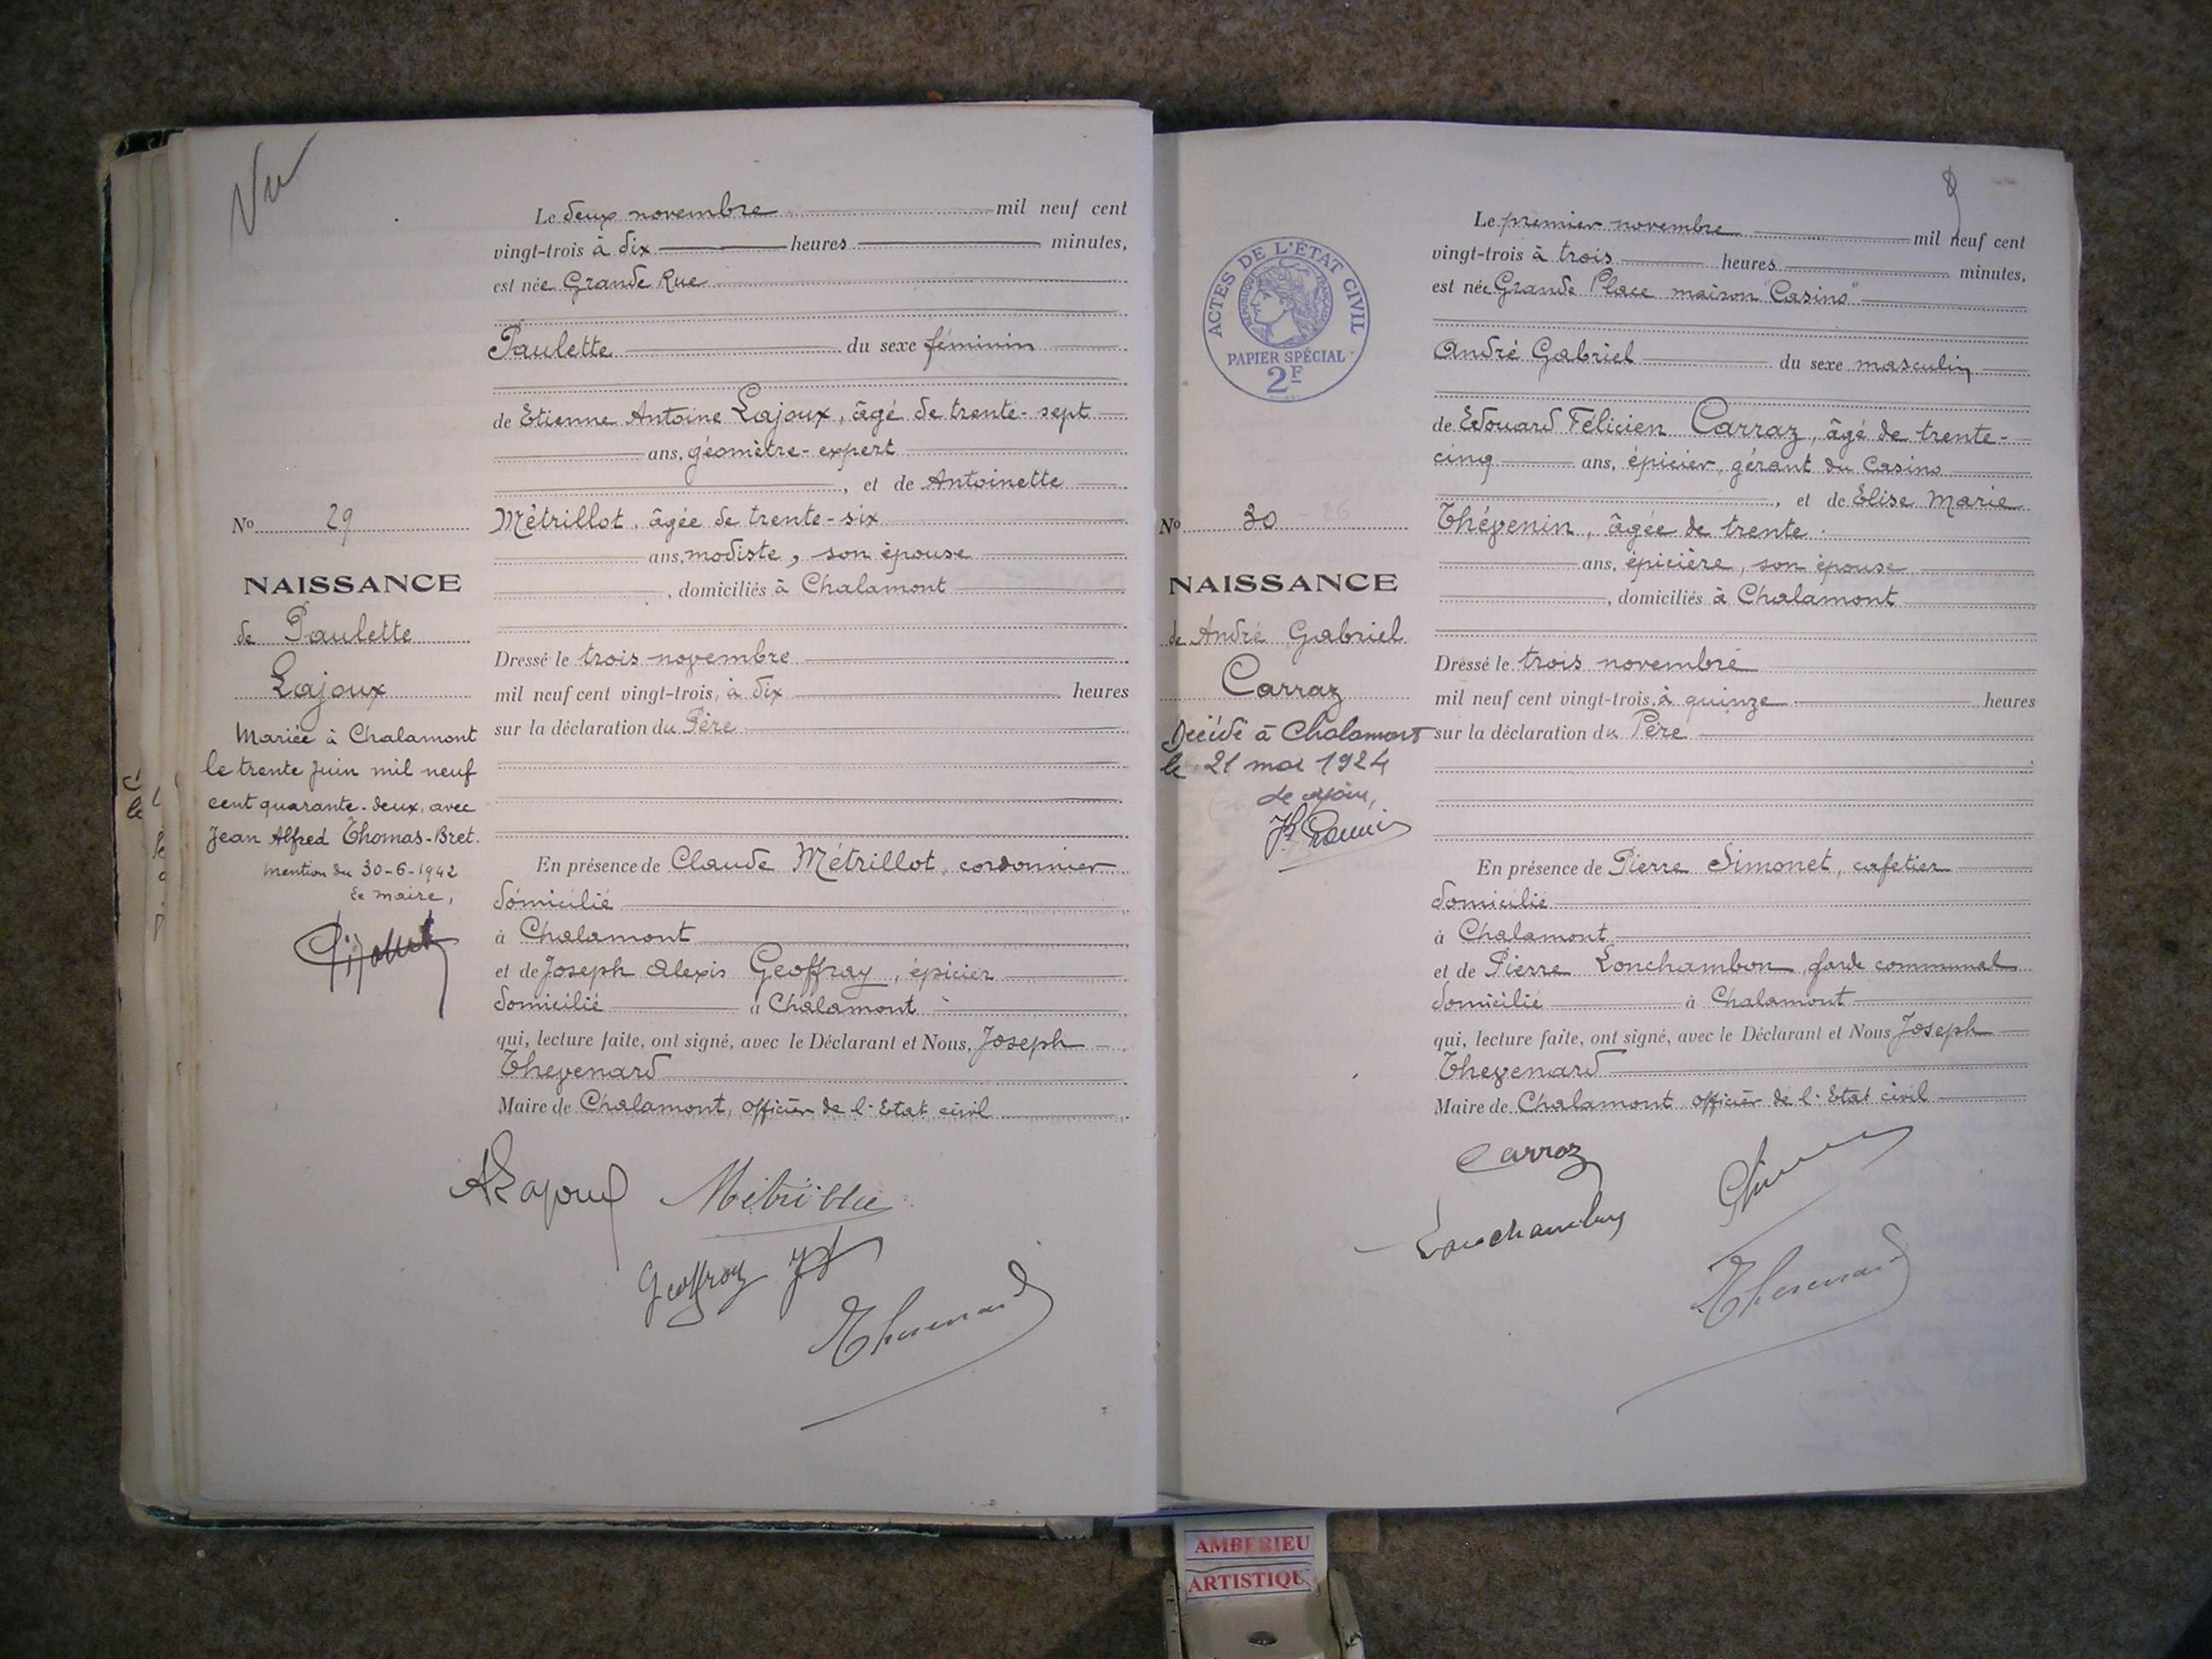 Vu
Le deux novembre mil neuf cent
vingt-trois à dix heures minutes,
est née Grande Rue
Paulette du sexe féminin
de Etienne Antoine Lajoux, âgé de trente-sept
ans, géomètre-expert
, et de Antoinette
Métrillot, âgée de trente-six
ans, modiste, son épouse
, domiciliés à Chalamont
Dressé le trois novembre
mil neuf cent vingt-trois, à dix heures
sur la déclaration du Père
En présence de Claude Métrillot, cordonnier
domicilié
à Chalamont
et de Joseph Alexis Geoffray, épicier
domicilié à Chalamont
qui, lecture faite, ont signé, avec le Déclarant et Nous, Joseph
Thevenard
Maire de Chalamont, officier de l'Etat civil
No 29
NAISSANCE
de Paulette
Lajoux
Mariée à Chalamont
le trente juin mil neuf
cent quarante-deux, avec
Jean Alfred Thomas-Bret.
Mention du 30-6-1942
Le maire,
ALajoux
Geoffray
Thevenard
ACTES DE L'ÉTAT CIVIL
RÉPUBLIQUE FRANÇAISE
PAPIER SPÉCIAL
2F
Le premier novembre mil neuf cent
vingt-trois à trois heures minutes,
est né Grande Place maison "Casino"
André Gabriel du sexe masculin
de Edouard Félicien Carraz, âgé de trente-
cinq ans, épicier, gérant du Casino
, et de Elise Marie
Thévenin, âgée de trente
ans, épicière, son épouse
, domiciliés à Chalamont
Dressé le trois novembre
mil neuf cent vingt-trois, à quinze heures
sur la déclaration du Père
En présence de Pierre Simonet, cafetier
domicilié
à Chalamont
et de Pierre Lonchambon, garde communal
domicilié à Chalamont
qui, lecture faite, ont signé, avec le Déclarant et Nous Joseph
Thevenard
Maire de Chalamont officier de l'Etat civil
No 30
NAISSANCE
de André Gabriel
Carraz
Décédé à Chalamont
le 21 mai 1924
Carraz
Lonchambon
Thevenard
AMBERIEU
ARTISTIQU